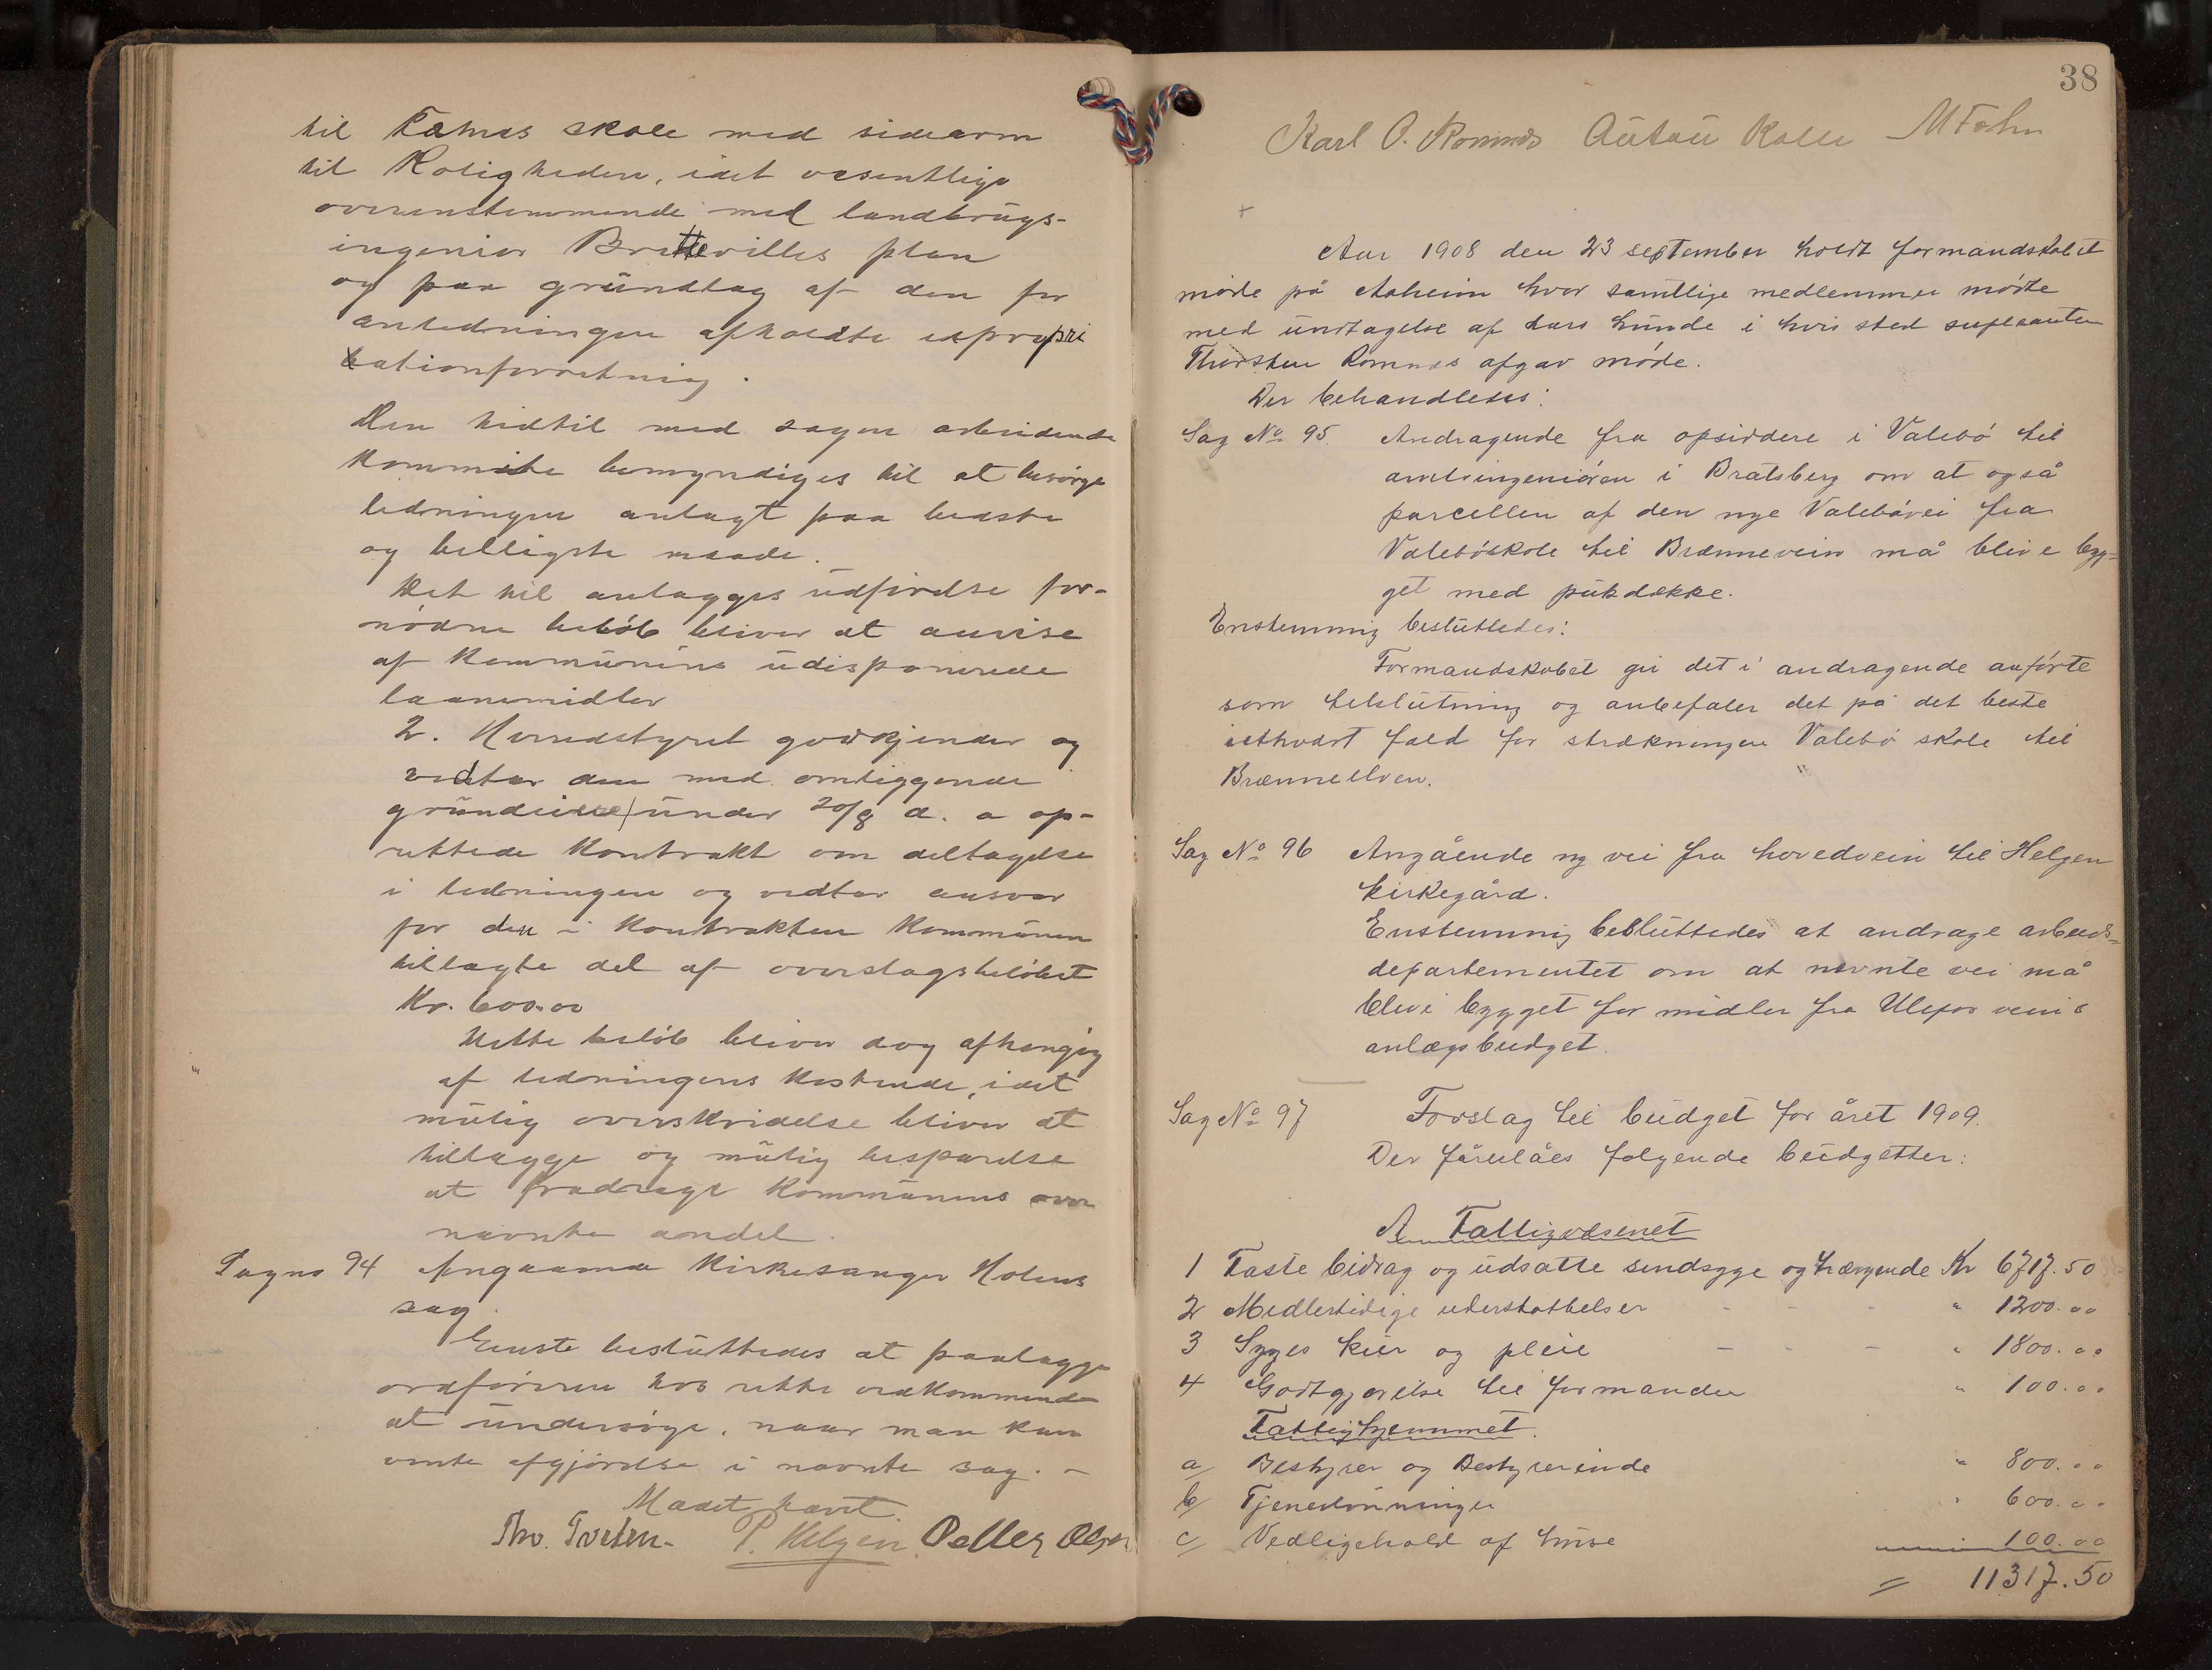 til Fahnes skole med sidearm
til Roligheden, idet væsentlige
overenstemmende med landbrugs-
ingeniør Brettevilles plan
og paa grundlag af den for
anledningen afholdte expropri
ationforretning.
Den hidtil med sagen arbeidende
kommite bemyndiges til at besørge
ledningen anlagt paa bedste
og billigste maade.
Det til anlægges udførelse for-
nødne beløb bliver at anvise
af kommunens udisponerede
laanemidler
2. Herredstyret godkjender og
vedtar den med omliggende
grundeiere under 20/8 d. a op-
rettede kontrakt om deltagelse
i ledningen og vedtar ansvar
for den i kontrakten kommunen
tillagte del af overslagsbeløbet
Kr. 600.00
Dette beløb bliver dog afhengig
af ledningens kostende, idet
mulig overskridelse bliver at
tillægge og mulig besparelse
at fradrage kommunens over
nævnte andel.
Sagno 94 Angaaende Kirkesanger Holms
sag.
Enste besluttedes at paalægge
ordføreren hos rette vedkommende
at undersøge, naar man kan
vente afgjørelse i nævnte sag. -
Mødet hævet.
Tho. Tveten. P. Helgen. Peller Olsen
38
Karl O. Romnes Anton Kolle M Fahn
Aar 1908 den 23 september holdt formandskabet
møde på Aaheim hvor samtlige medlemmer mødte
med undtagelse af Lars Lunde i hvis sted supleanten
Thorsten Romnes afgav møde.
Der behandledes:
Sag No 95. Andragende fra opsiddere i Valebø til
amtsingeniøren i Bratsberg om at også
parcellen af den nye Valebøvei fra
Valebøskole til Brænneveien må blive byg-
get med pukdække.
Enstemmig besluttedes:
Formandskabet gir det i andragende anførte
som tilslutning og anbefaler det på det beste
iethvært fald for strækningen Valebø skole til
Brænneelven.
Sag No 96 Angående ny vei fra hovedvein til Helgen
kirkegård.
Enstemmig besluttedes at andrage arbeids-
departementet om at nævnte vei må
blive bygget for midler fra Ulefos veiens
anlægsbudget.
Sag No 97 Forslag til budget for året 1909.
Der forelåes følgende budgetter:
A Fattigvæsenet
1 Faste bidrag og udsatte sindsyge og trængende Kr 6717.50
2 Midlertidige understøttelser - - - " 1200.00
3 Syges kur og pleie - - - " 1800.00
4 Godtgjørelse til formanden " 100.00
Fattighjemmet.
a/ Bestyrer og Bestyrerinde " 800.00
b/ Tjenerlønninger " 600.00
c/ Vedligehold af huse " 100.00
= 11317.50